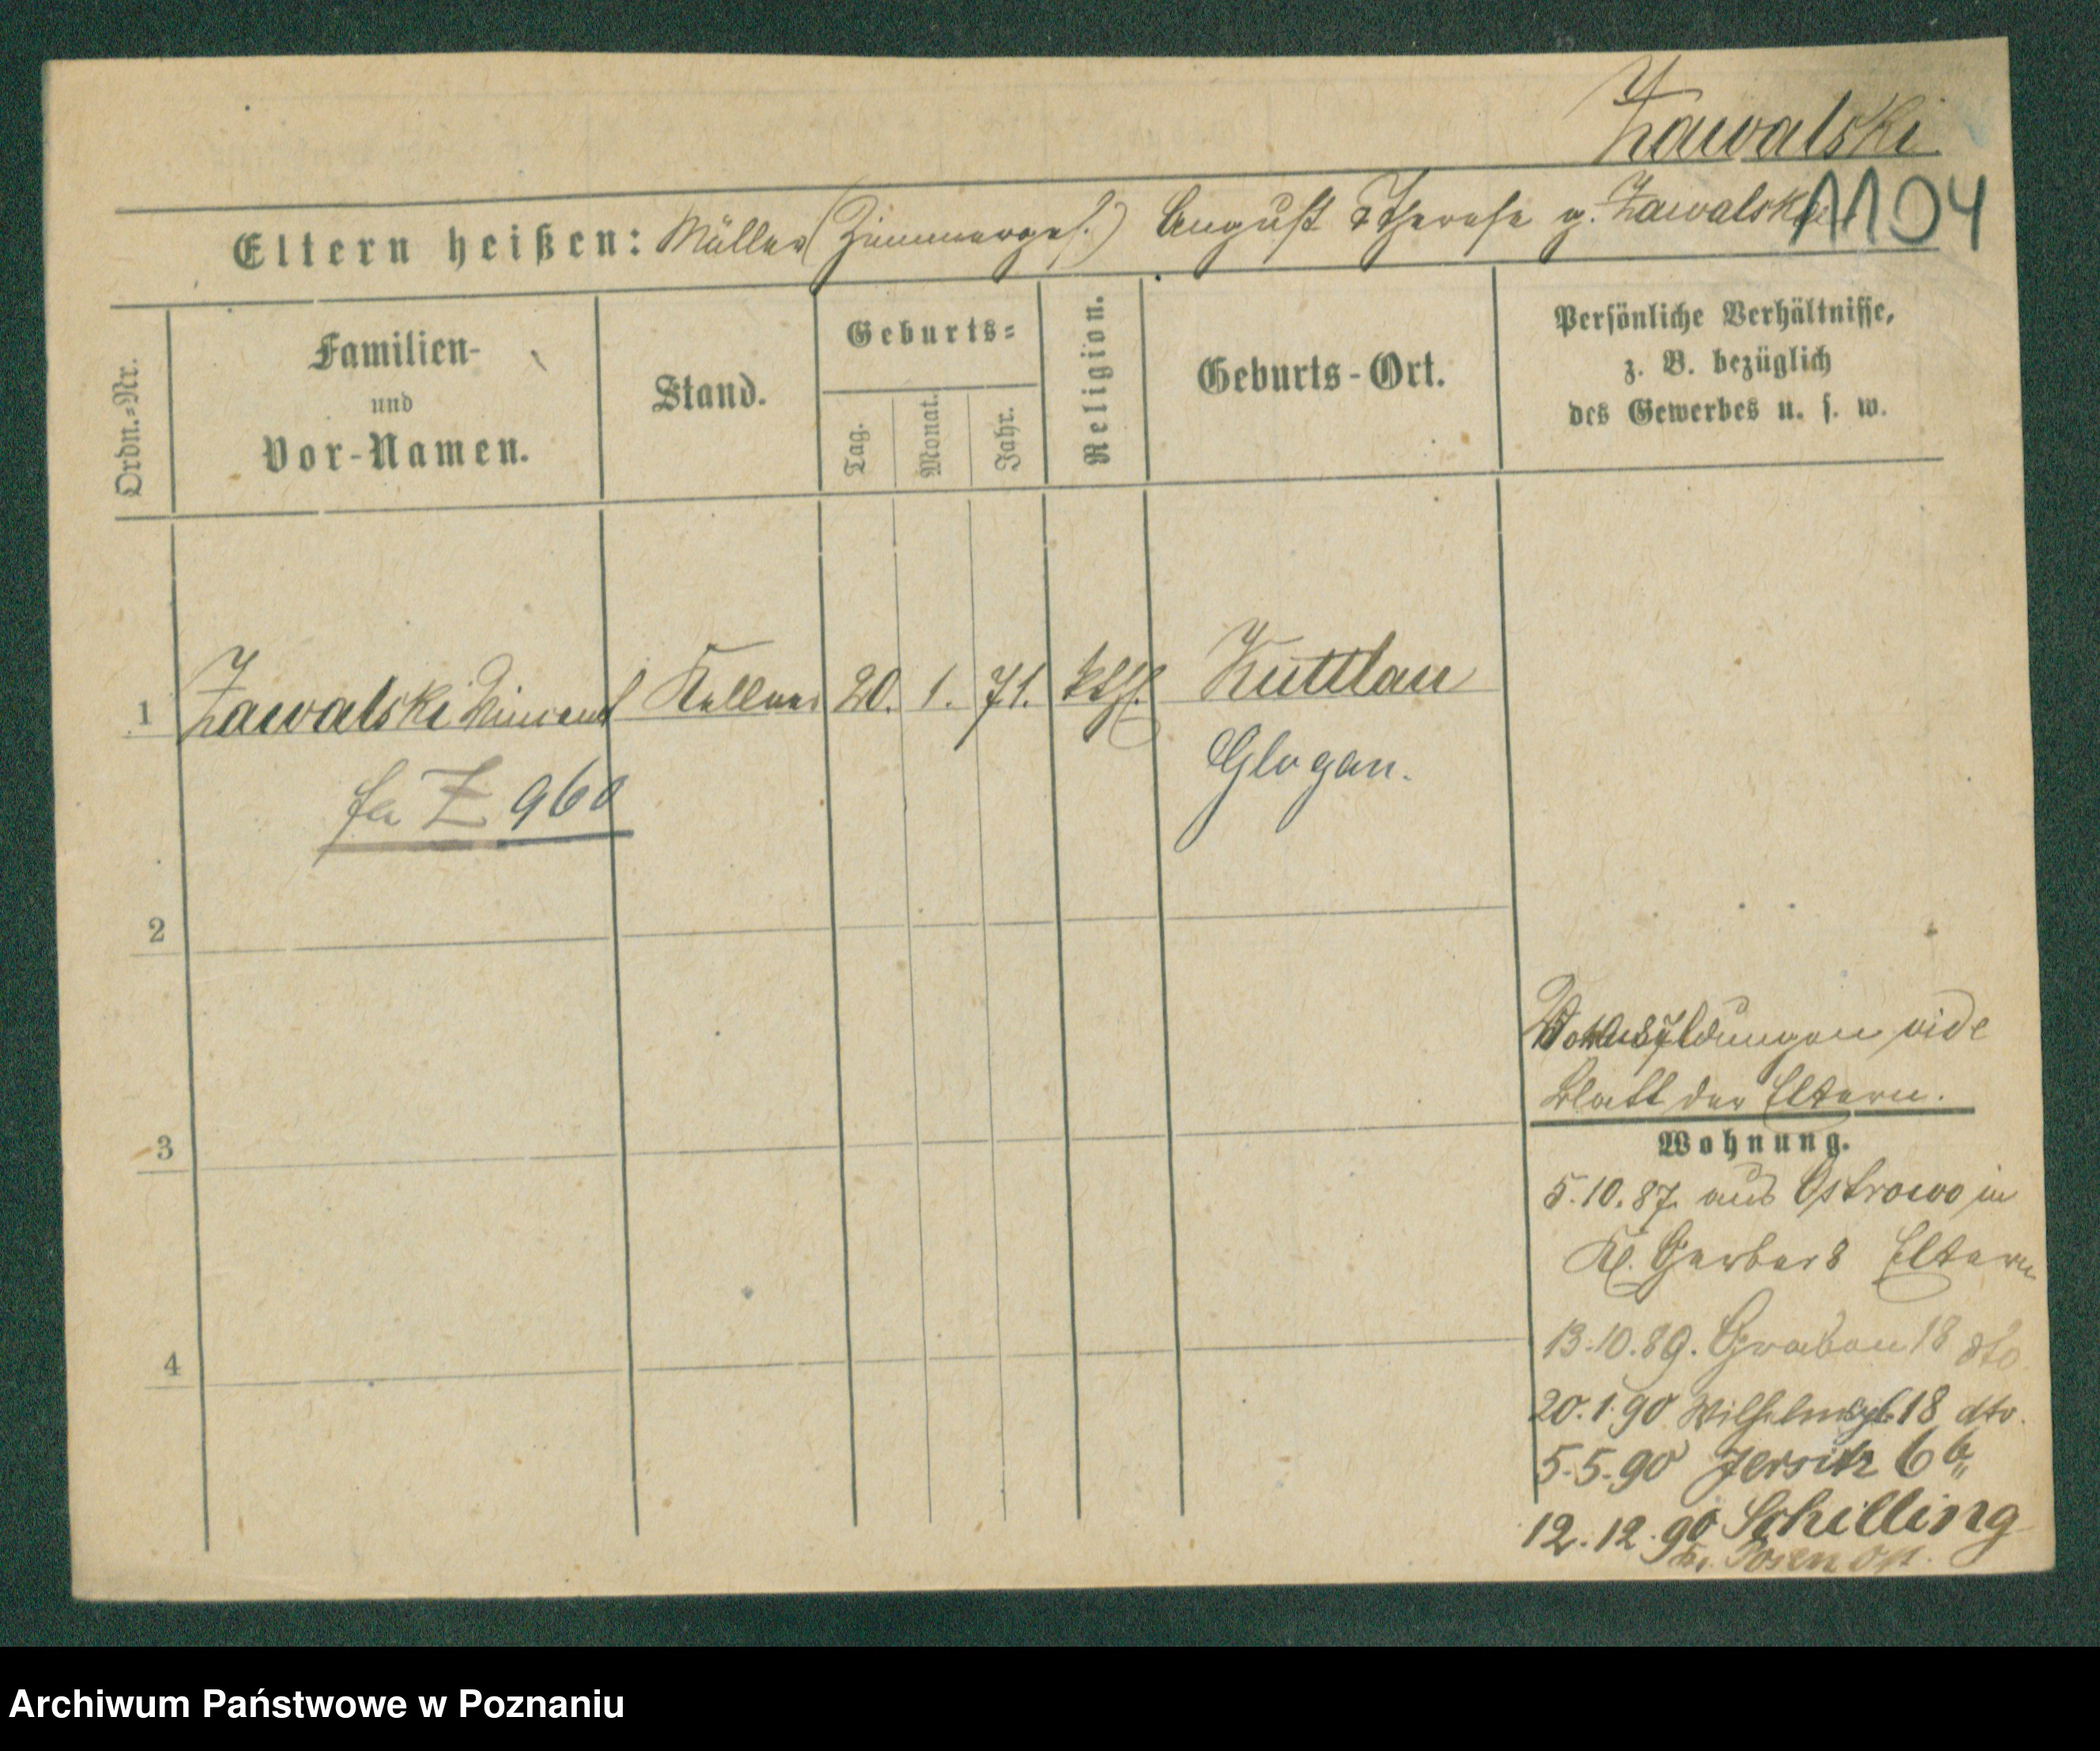 Zawalski
1104
Eltern heißen: Müller (Zimmerges.) August & Therese g. Zawalska
Ordn.=Nr.
Familien-
und
Vor-Namen.
Stand.
Geburts=
Tag.
Monat.
Jahr.
Religion.
Geburts-Ort.
Persönliche Verhältnisse,
z. B. bezüglich
des Gewerbes u. s. w.
1 Zawalski Vincent Kellner 20. 1. 71. kth. Kuttlau
Glogau.
fa Z 960
2
3
4
vide
Blatt der Eltern.
Wohnung.
5.10.87. aus Ostrowo in
Kl. Gerber 8 Eltern
13.10.89. Graben 18 dto
20.1.90 Wilhelmspl. 18 dto.
5.5.90 Jersitz 6
12.12.90 Schilling
Kr. Posen Ost.
Archiwum Państwowe w Poznaniu